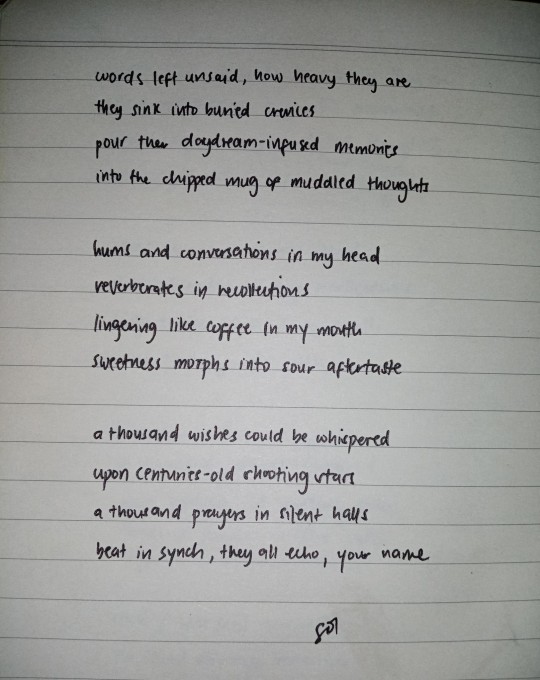 words left unsaid, how heavy they are
they sink into buried crevices
pour their daydream-infused memories
into the chipped mug of muddled thoughts
hums and conversations in my head
reverberates in recollections
lingering like coffee in my mouth
sweetness morphs into sour aftertaste
a thousand wishes could be whispered
upon centuries-old shooting stars
a thousand prayers in silent halls
beat in synch, they all echo, your name